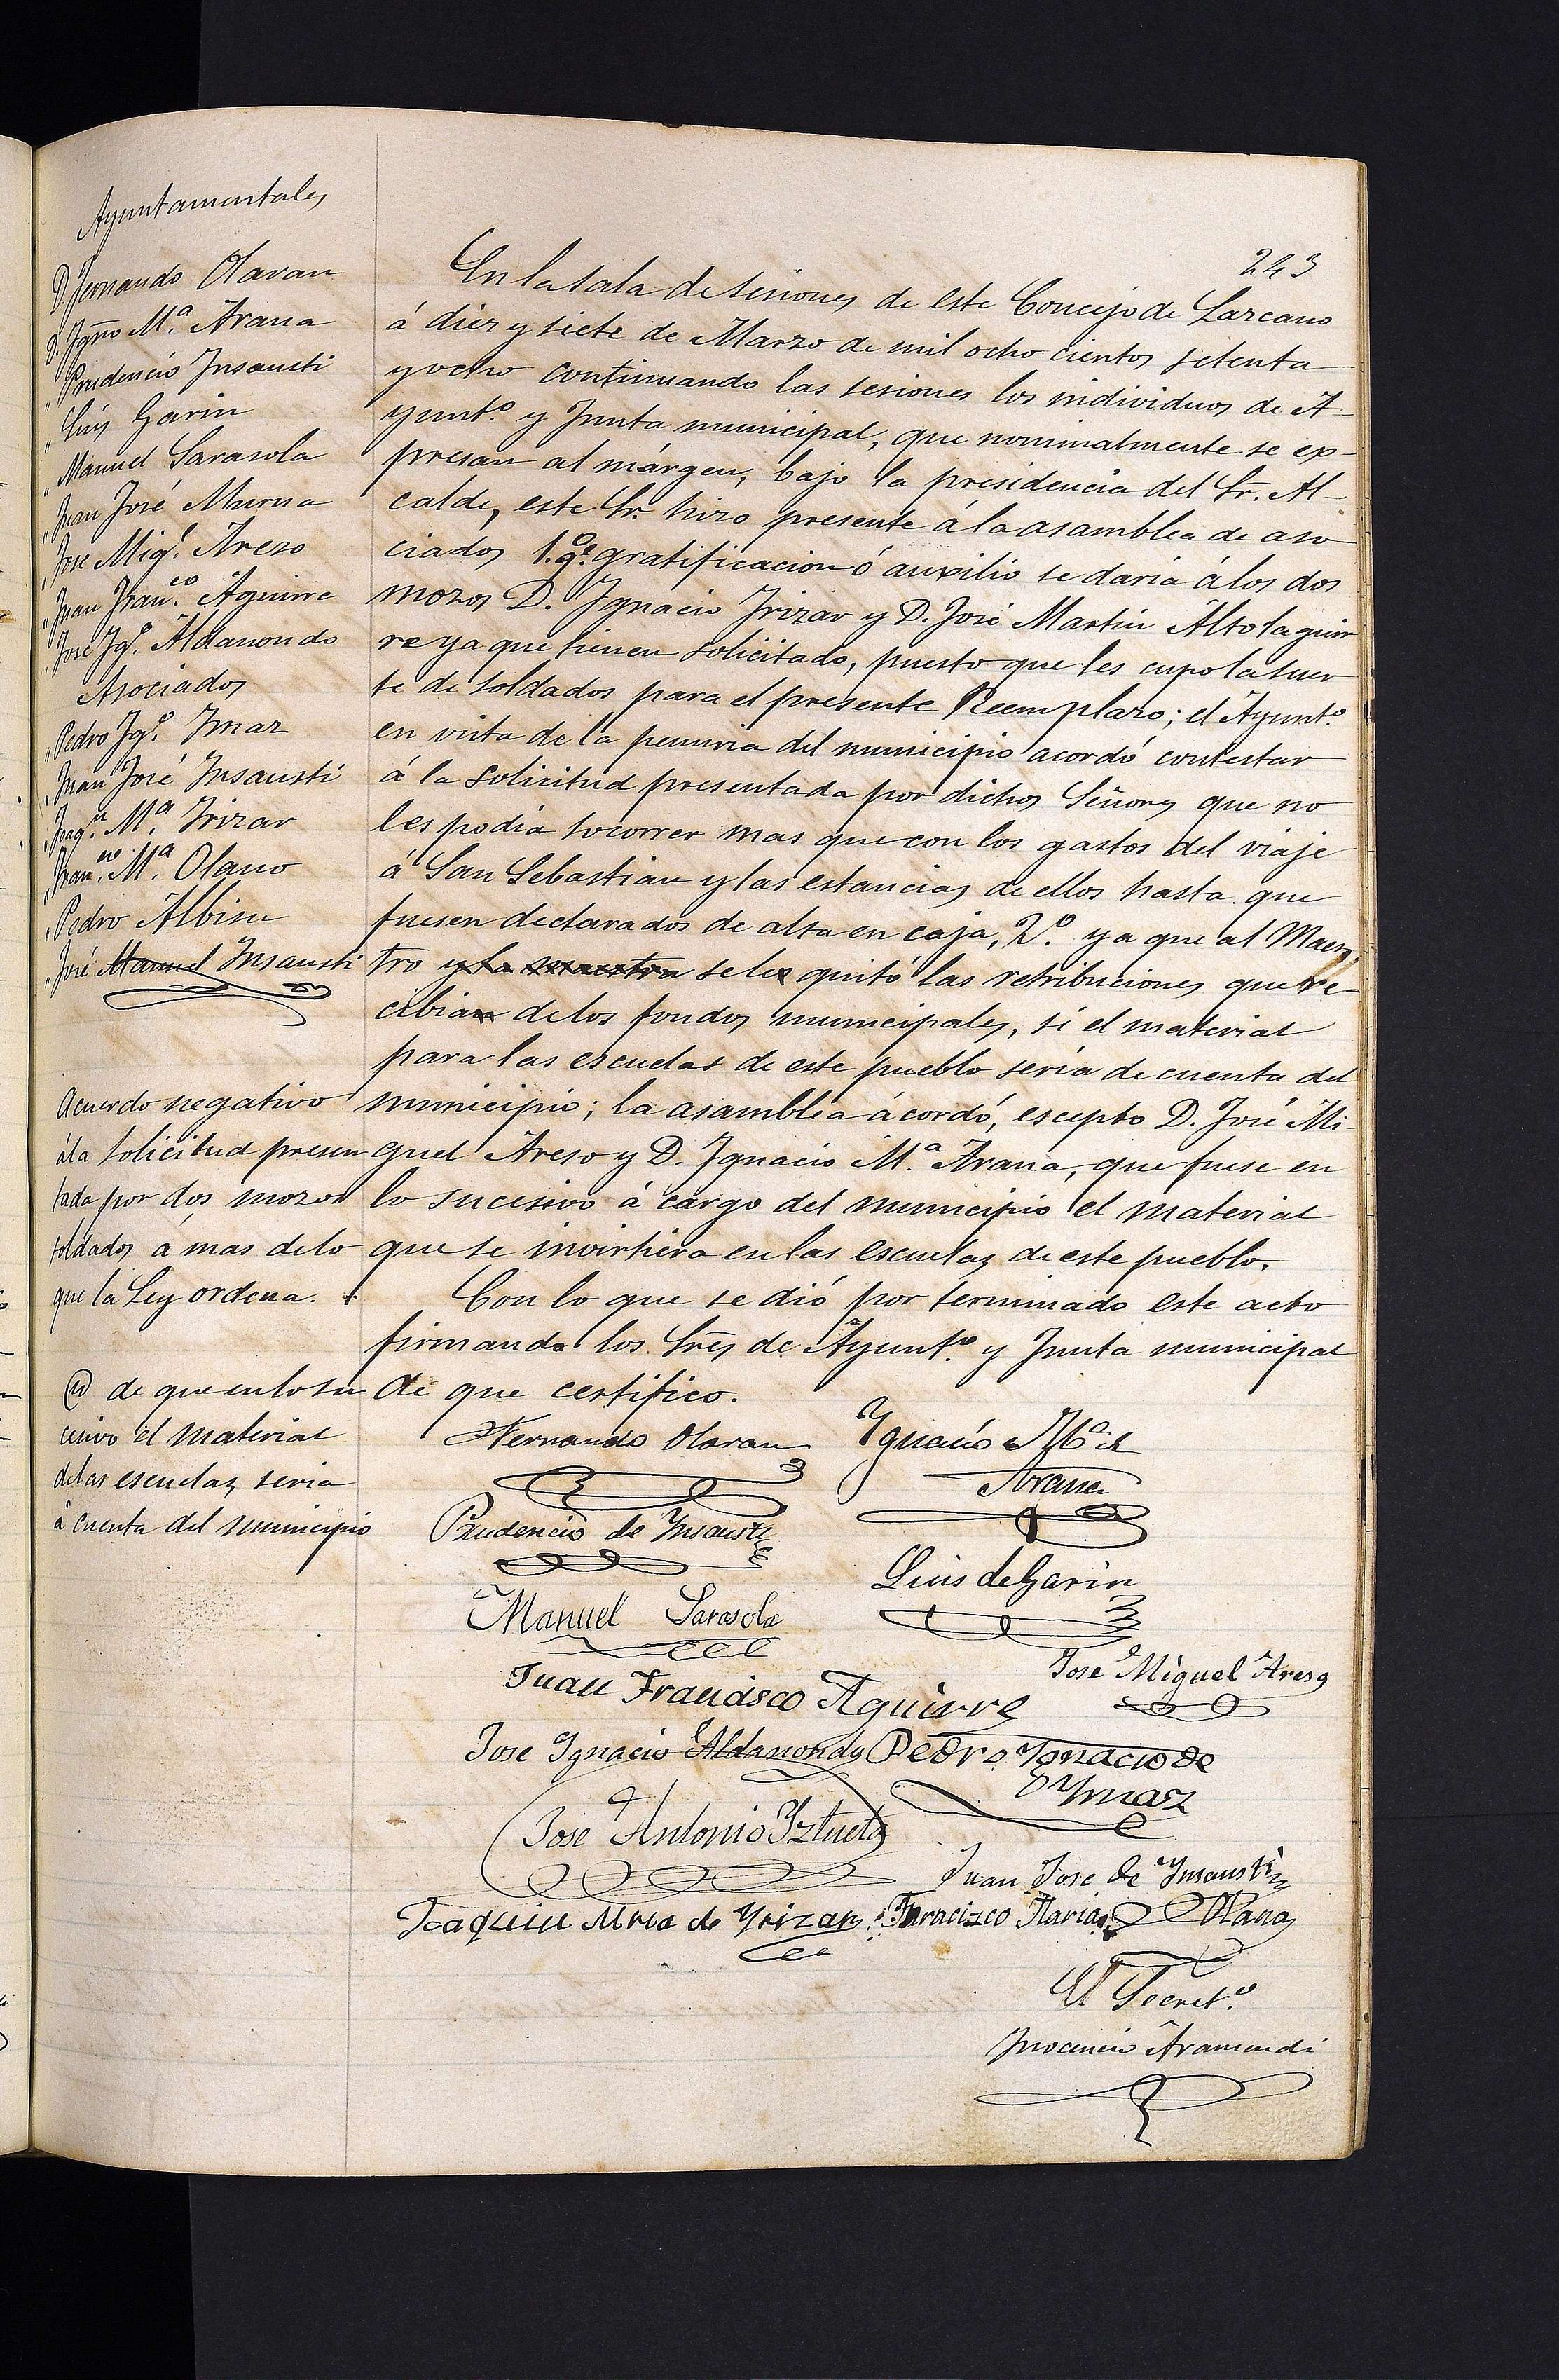 Ayuntamentales
D. Fernando Olaran
D. Ygno M.ª Arana
" Prudencio Insausti
" Luis Garin
" Manuel Sarasola
" Juan José Murua
" José Mig.l Areso
" Juan Fran.co Aguirre
" José Ig.o Aldanondo
Asociados
" Pedro Ig.o Imaz
" Juan José Insausti
" Joaq.n M.ª Irizar
" Fran.co M.ª Olano
" Pedro Albisu
" José Manuel Insausti
Acuerdo negativo
á la solicitud presen
tada por dos mozos
soldados á mas de lo
que la Ley ordena. +
de que en lo su
cesivo el material
de las escuelas seria
á cuenta del municipio
243
En la sala de sesiones de este Concejo de Lazcano
á diez y siete de Marzo de mil ocho cientos setenta
y ocho continuando las sesiones los individuos de A
yunt.o y Junta municipal, que nominalmente se ex-
presan al márgen, bajo la presidencia del Sr. Al-
calde, este Sr. hizo presente á la asamblea de aso
ciados 1.o q.e gratificacion ó auxilio se daria á los dos
mozos D. Ignacio Irizar y D. José Martin Altolaguir
re ya que tienen solicitado, puesto que les cupo la suer
te de soldados para el presente Reemplazo; el Ayunt.o
en vista de la penuria del municipio acordó contestar
á la solicitud presentada por dichos Señores que no
les podia socorrer mas que con los gastos del viaje
á San Sebastian y las estancias de ellos hasta que
fuesen declarados de alta en caja, 2.o ya que al Maes
tro y la maestra se les quitó las retribuciones que re-
cibian de los fondos municipales, si el material
para las escuelas de este pueblo seria de cuenta del
municipio; la asamblea acordó, escepto D. José Mi
guel Areso y D. Ignacio M.ª Arana, que fuese en
lo sucesivo á cargo del municipio el material
que se invirtiera en las escuelas de este pueblo.
Con lo que se dió por terminado este acto
firmando los Sres de Ayunt.o y Junta municipal
de que certifico.
Fernando Olaran
Ygnacio M.ª de
Arana
Prudencio de Ynsausti
Luis de Garin
Manuel Sarasola
Jose Miguel Areso
Juan Francisco Aguirre
Jose Ygnacio Aldanondo
Pedro Ygnacio de
Ymaz
Jose Antonio Yztueta
Juan Jose de Ynsausti
Joaquin Mria de Yrizar
Francizco Maria Olano
El Secret.o
Inocencio Aramendi